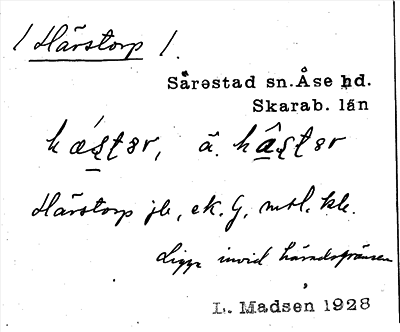 / Härstorp /.
Särestad sn. Åse hd.
Skarab. län
hǽʂʈər, ä. hâʂʈər
Härstorp jb, ek. G, mtl. kb.
Ligger invid häradsgränsen
L. Madsen 1928